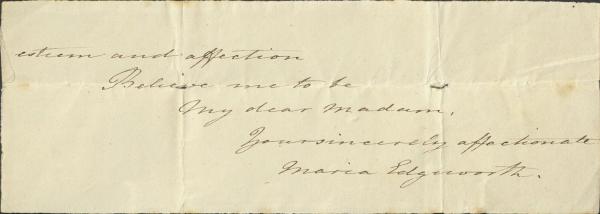 esteem and affection
Believe me to be
My dear Madam.
Yoursincerely affectionate
Maria Edgeworth.